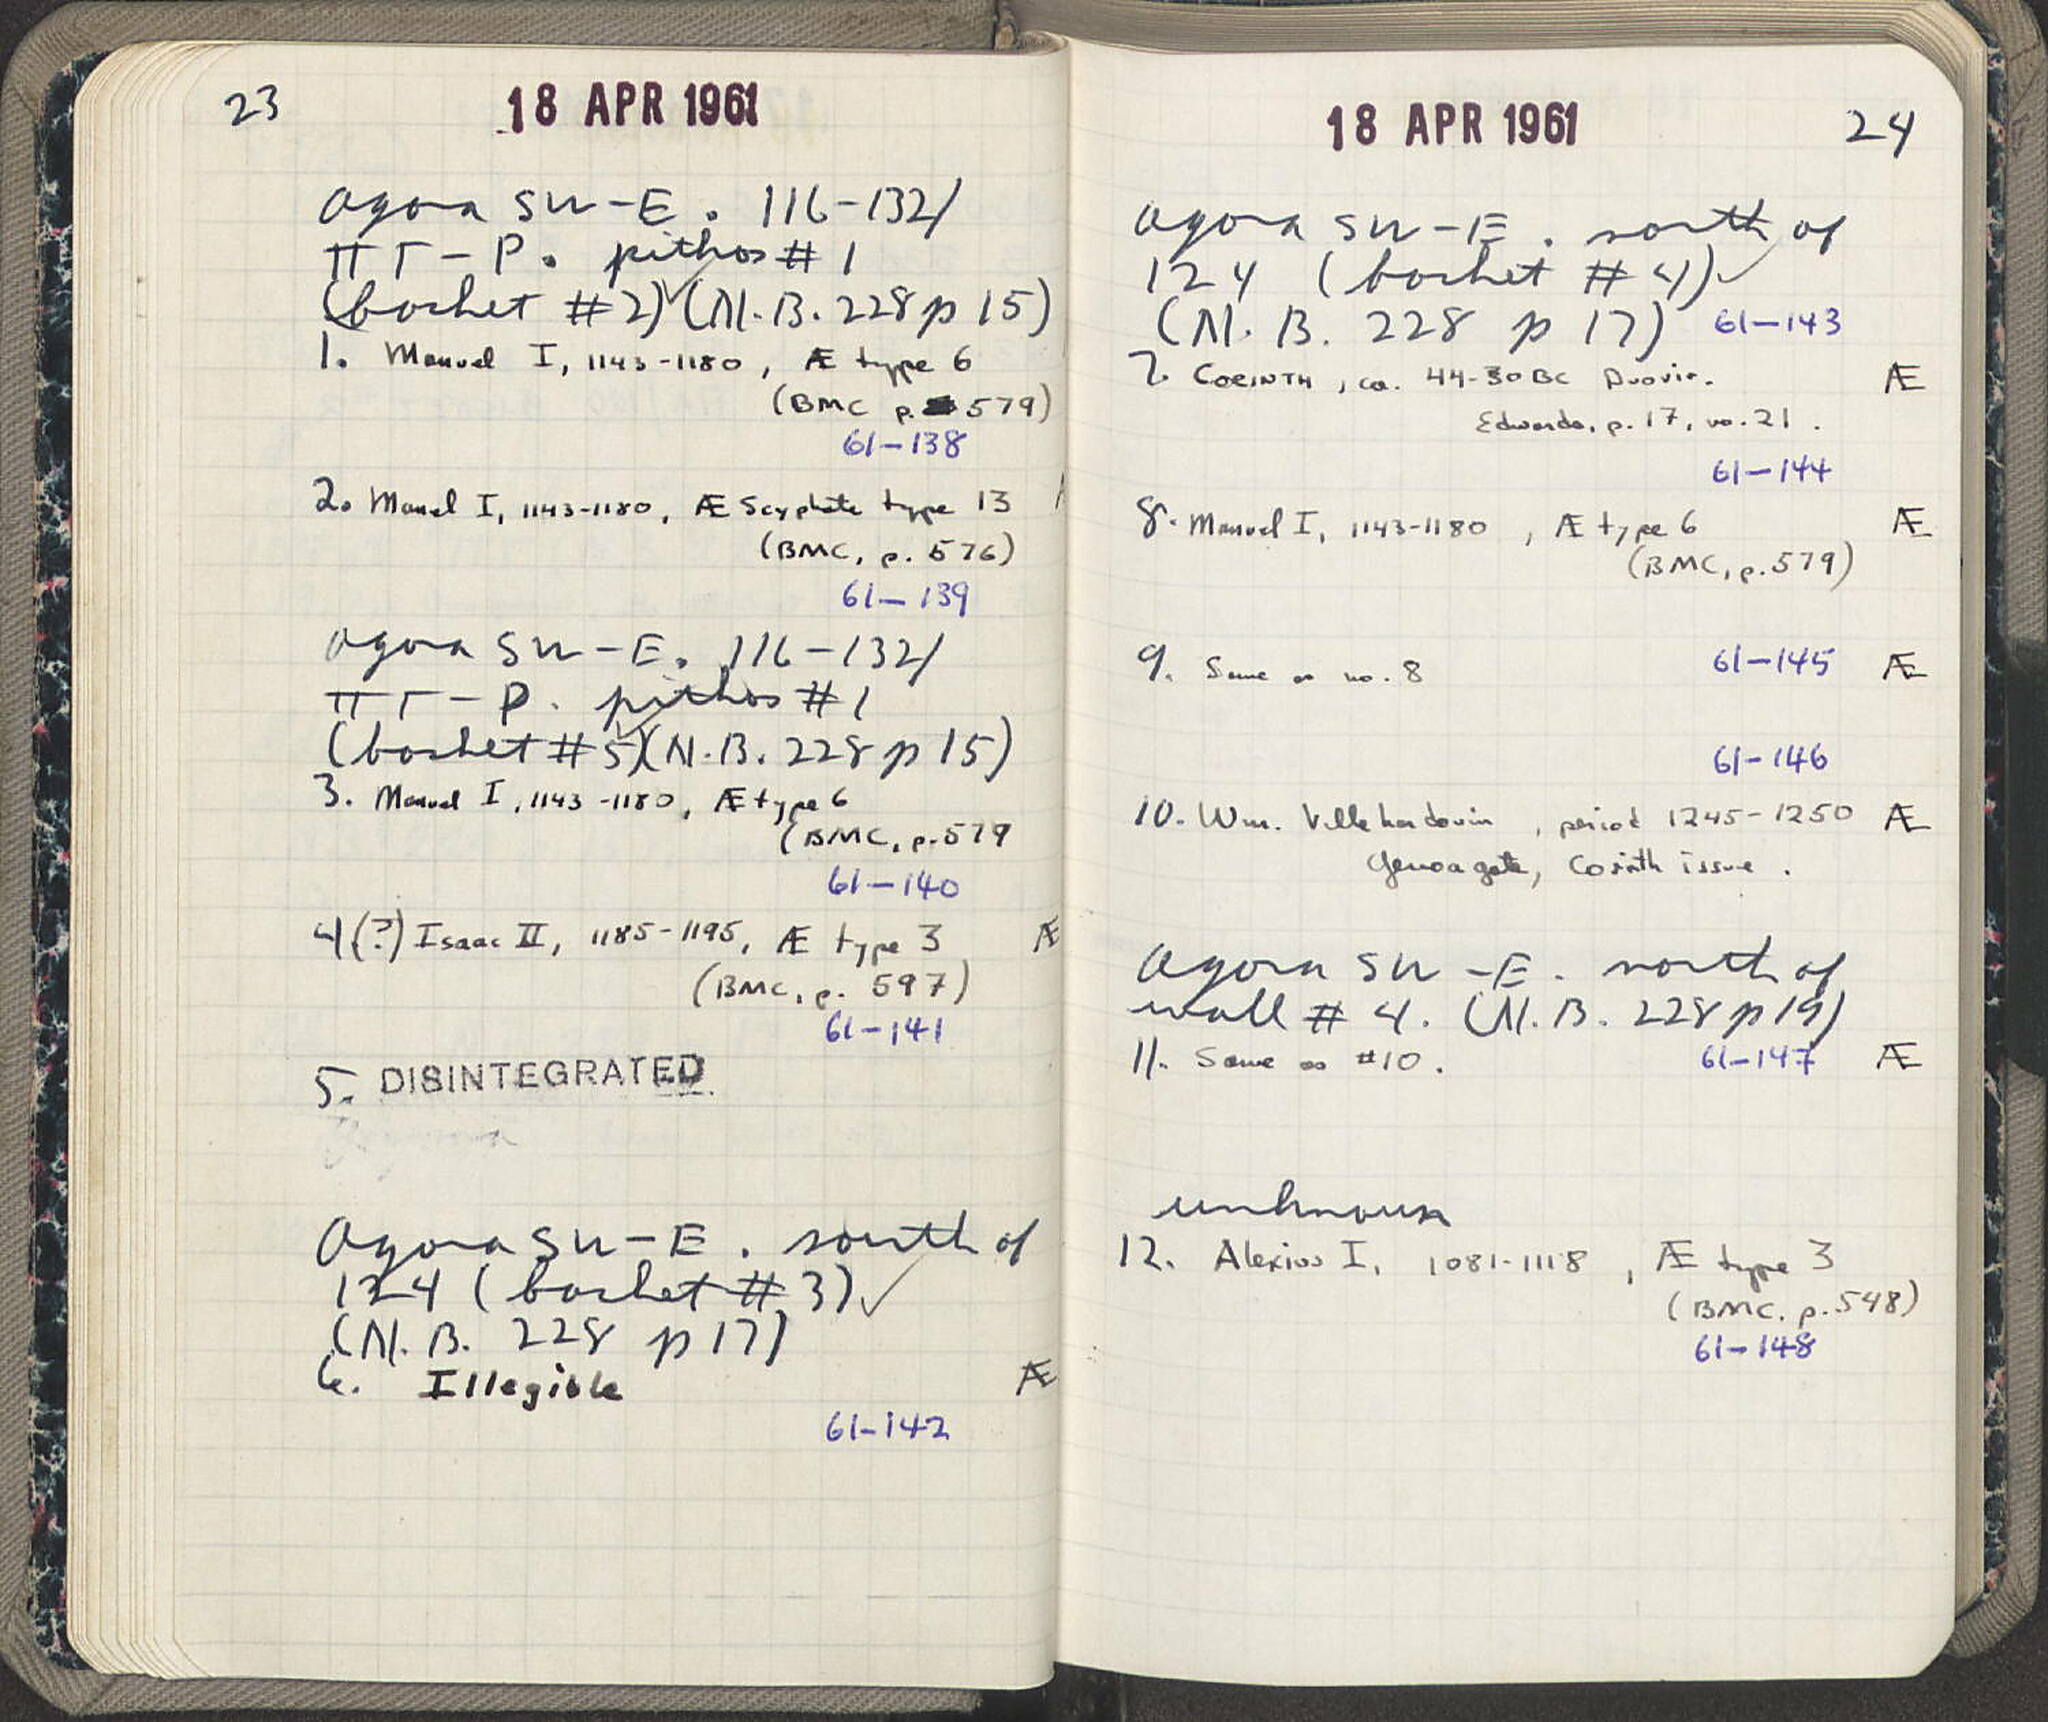 23
18 APR 1961
agora SW-E. 116-132/
ΠΓ-P. pithos #1
(basket #2) ✓ (N.B. 228 p 15)
1. Manuel I, 1143-1180, Æ type 6
(BMC p. 579)
61-138
2. Manuel I, 1143-1180, Æ Scyphate type 13
(BMC, p. 576)
61-139
agora SW-E. 116-132/
ΠΓ-P. pithos #1
(basket #5) (N.B. 228 p 15)
3. Manuel I, 1143-1180, Æ type 6
(BMC, p. 579
61-140
4(?) Isaac II, 1185-1195, Æ type 3 Æ
(BMC, p. 597)
61-141
5. DISINTEGRATED
agora SW-E. south of
124 (basket #3) ✓
(N.B. 228 p 17)
6. Illegible Æ
61-142
18 APR 1961
24
agora SW-E. south of
124 (basket #4) ✓
(N.B. 228 p 17) 61-143
7. CORINTH, ca. 44-30 BC Duovir. Æ
Edwards, p. 17, no. 21.
61-144
8. Manuel I, 1143-1180, Æ type 6 Æ
(BMC, p. 579)
9. Same as no. 8 61-145 Æ
61-146
10. Wm. Villehardouin, period 1245-1250 Æ
Genoa gate, Corinth issue.
agora SW-E. north of
wall #4. (N.B. 228 p 19)
11. Same as #10. 61-147 Æ
unknown
12. Alexius I, 1081-1118, Æ type 3
(BMC. p. 548)
61-148